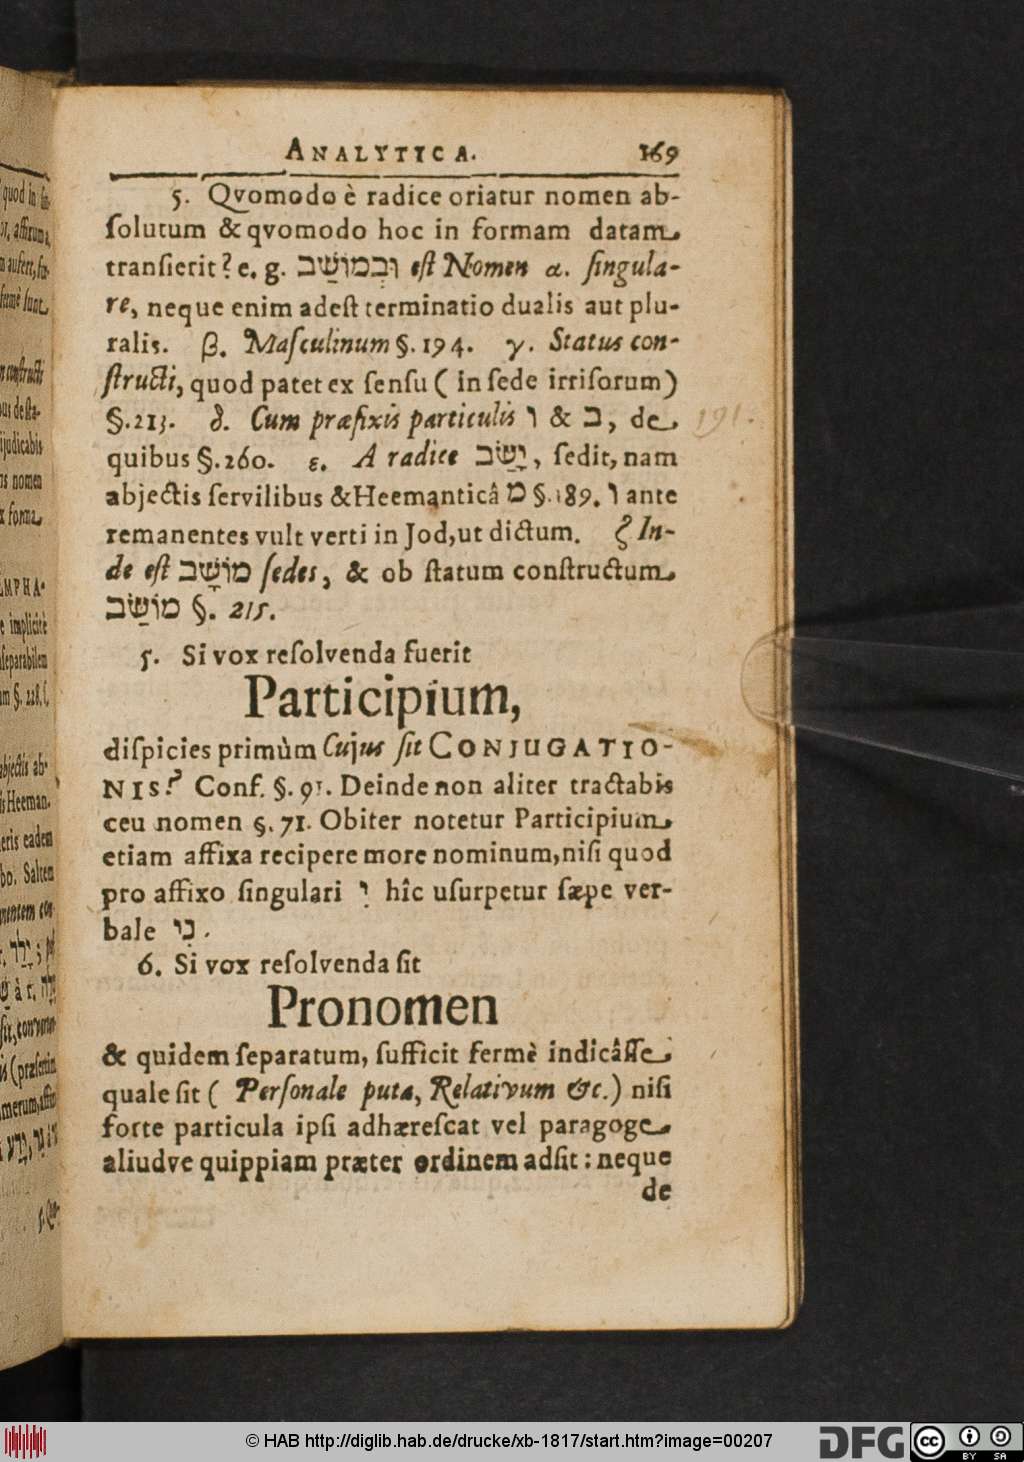 ANALYTICA. 169
5. Qvomodo è radice oriatur nomen ab-
ſolutum & qvomodo hoc in formam datam
tranſierit? e. g. וּבְמוֹשַׁב eſt Nomen α. ſingula-
re, neque enim adeſt terminatio dualis aut plu-
ralis. β. Maſculinum §. 194. γ. Status con-
ſtructi, quod patet ex ſenſu (in ſede irriſorum)
§. 213. δ. Cum præfixis particulis ו & ב, de 191.
quibus §. 260. ε. A radice יָשַׁב, ſedit, nam
abjectis ſervilibus & Heemanticâ מ §. 189. ו ante
remanentes vult verti in Jod, ut dictum. ζ In-
de eſt מוֹשָׁב ſedes, & ob ſtatum conſtructum
מוֹשַׁב §. 215.
5. Si vox reſolvenda fuerit
Participium,
diſpicies primùm Cujus ſit CONJUGATIO-
NIS? Conf. §. 91. Deinde non aliter tractabis
ceu nomen §. 71. Obiter notetur Participium
etiam affixa recipere more nominum, niſi quod
pro affixo ſingulari ־ִי hîc uſurpetur ſæpe ver-
bale נִי.
6. Si vox reſolvenda ſit
Pronomen
& quidem ſeparatum, ſufficit fermè indicâſſe
quale ſit (Perſonale puta, Relativum &c.) niſi
forte particula ipſi adhæreſcat vel paragoge
aliudve quippiam præter ordinem adſit: neque
de
© HAB http://diglib.hab.de/drucke/xb-1817/start.htm?image=00207
DFG
cc BY SA